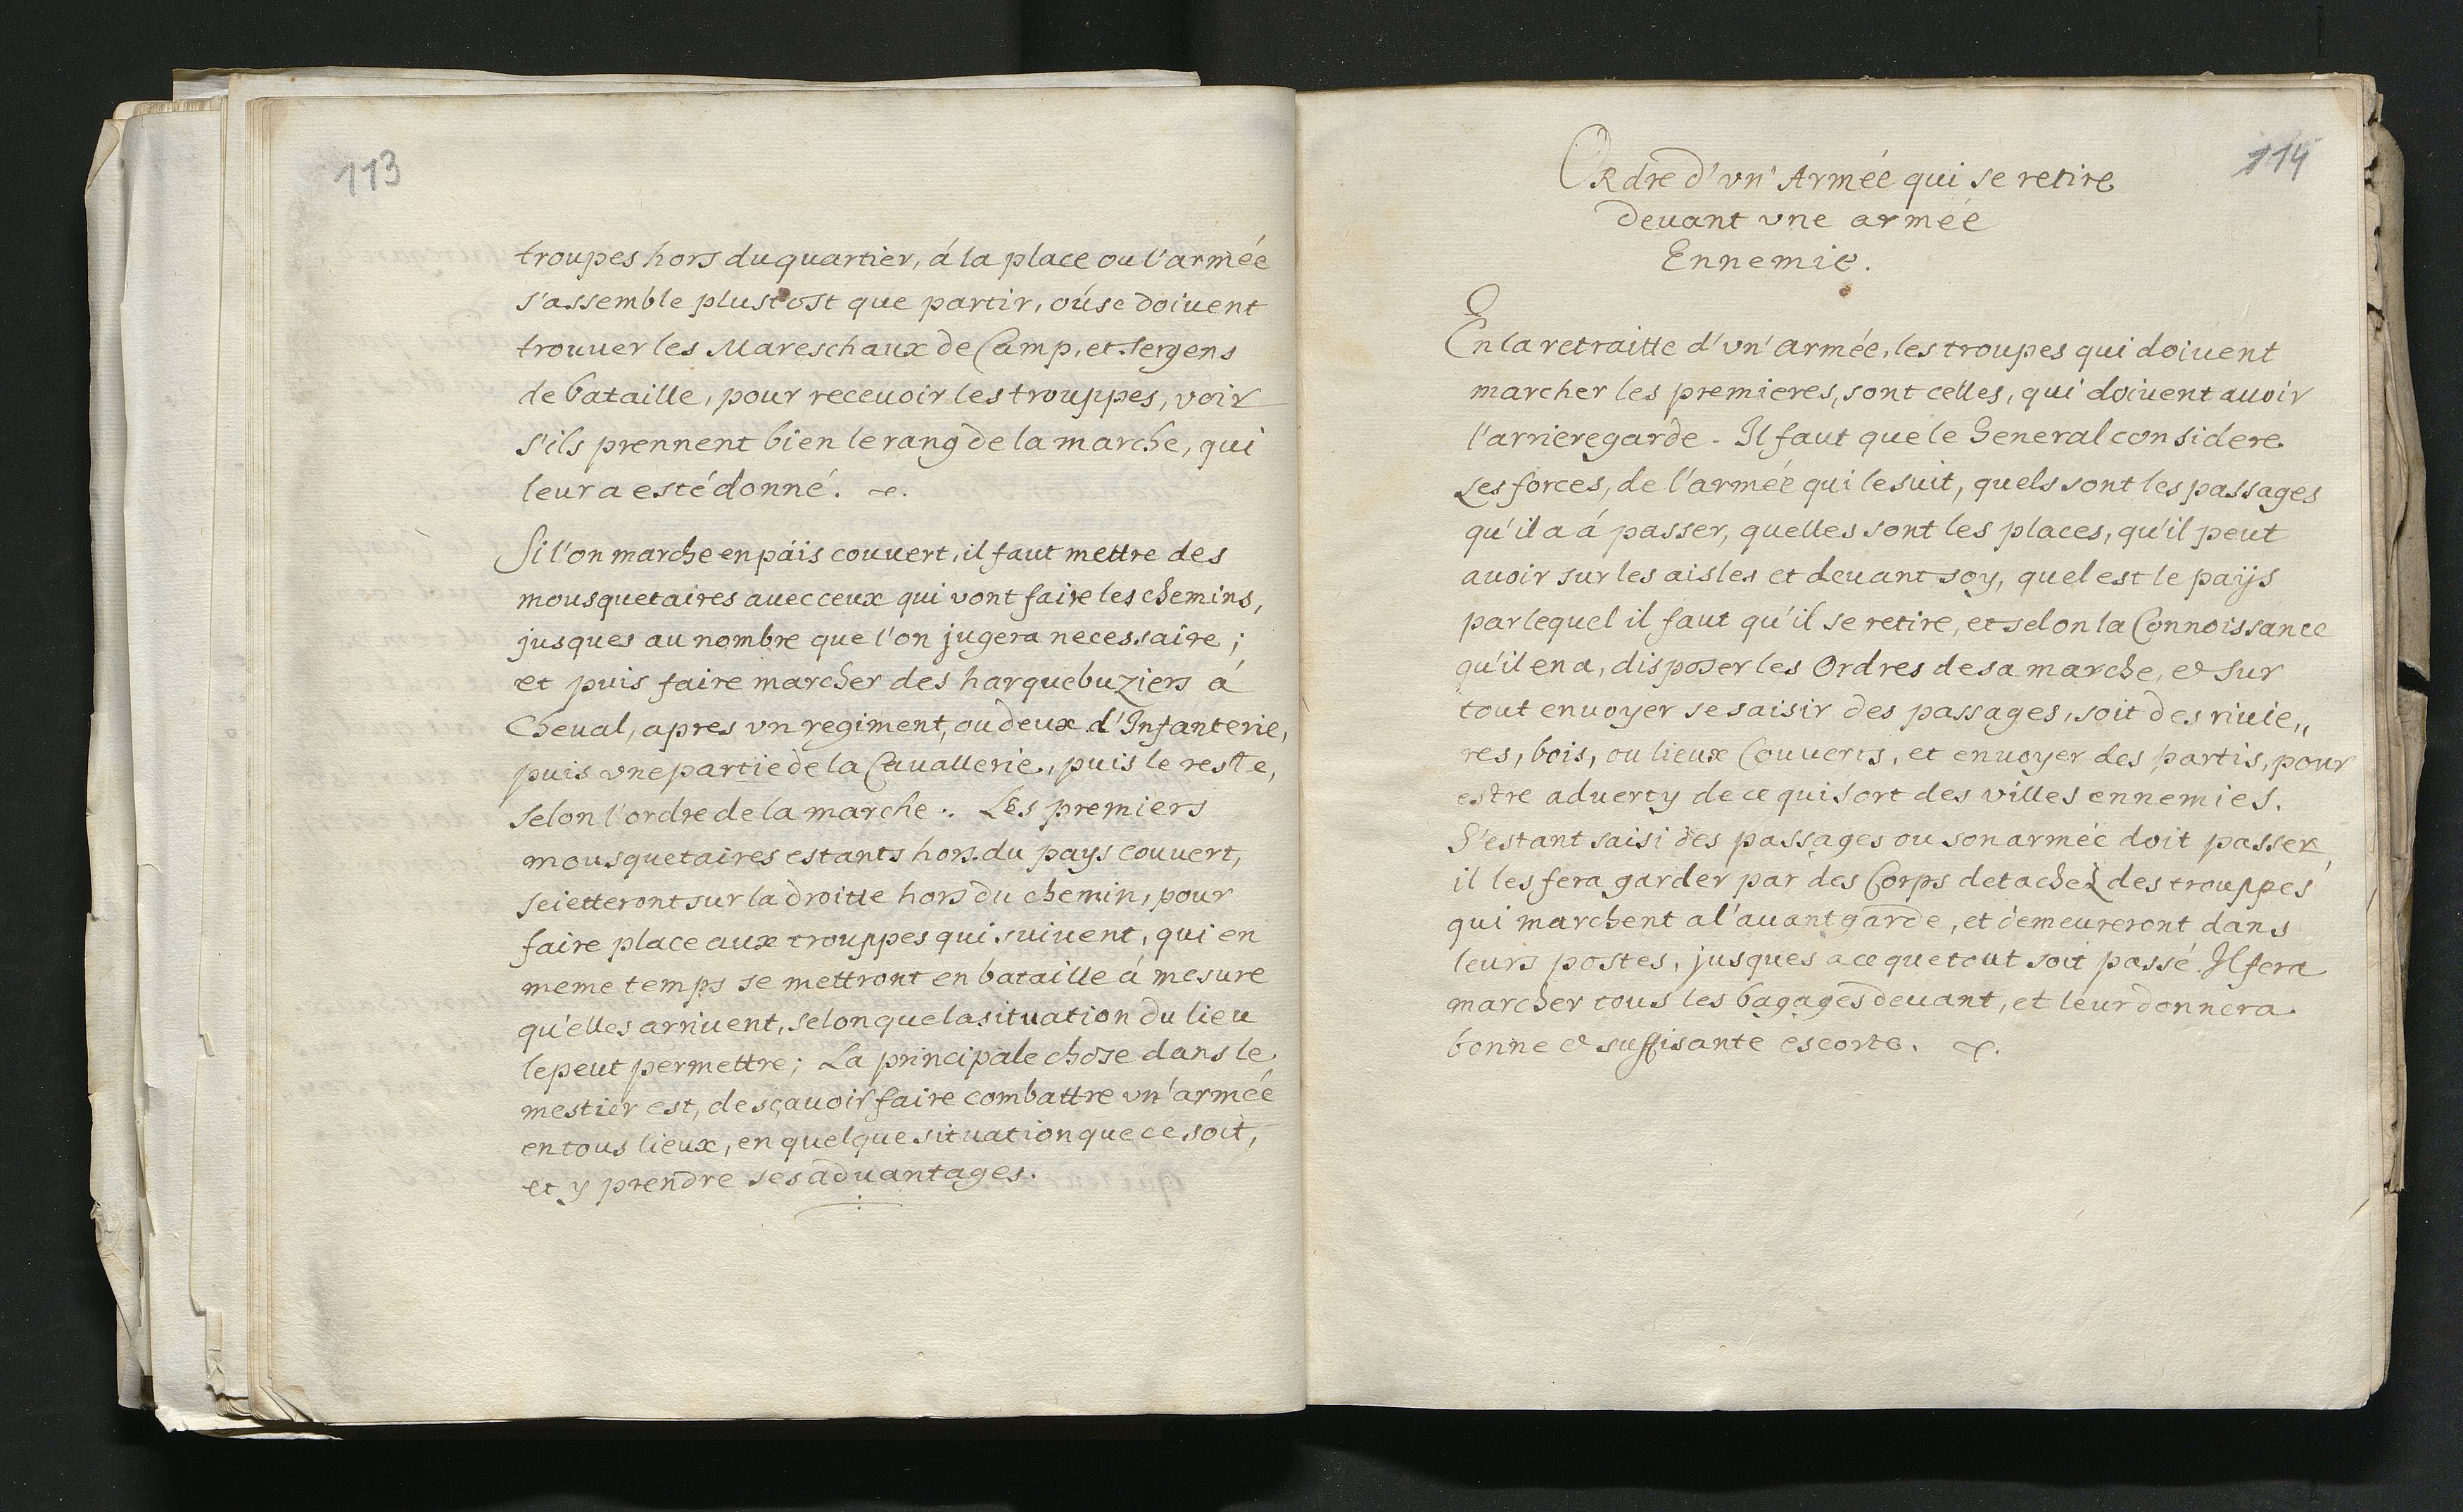 113
troupes hors du quartier, á la place ou l'armée
s'assemble plustost que partir, oú se doiuent
trouuer les Mareschaux de Camp, et Sergens
de bataille, pour receuoir les trouppes, voir
s'ils prennent bien le rang de la marche, qui
leur a esté donné.
Si l'on marche en páis couuert, il faut mettre des
mousquetaires auec ceux qui vont faire les chemins,
jusques au nombre que l'on jugera necessaire;
et puis faire marcher des harquebuziers á
Cheual, apres vn regiment, ou deux d'Infanterie,
puis vne partie de la Cauallerie, puis le reste,
selon l'ordre de la marche. Les premiers
mousquetaires estants hors du pays couuert,
se ietteront sur la droitte hors du chemin, pour
faire place aux trouppes qui suiuent, qui en
meme temps se mettront en bataille á mesure
qu'elles arriuent, selon que la situation du lieu
le peut permettre; La principale chose dans le
mestier est, de sçauoir faire combattre vn'armée
en tous lieux, en quelque situation que ce soit,
et y prendre ses aduantages.
114
Ordre d'vn' Armée qui se retire
deuant vne armée
Ennemie.
En la retraitte d'vn' armée, les troupes qui doiuent
marcher les premieres, sont celles, qui doiuent auoir
l'arrieregarde. Il faut que le General considere
Les forces, de l'armée qui le suit, quels sont les passages
qu'il a á passer, quelles sont les places, qu'il peut
auoir sur les aisles et deuant soy, quel est le paÿs
par lequel il faut qu'il se retire, et selon la Connoissance
qu'il en a, disposer les Ordres de sa marche, & sur
tout enuoyer se saisir des passages, soit des riuie„
res, bois, ou lieux Couuerts, et enuoyer des partis, pour
estre aduerty de ce qui sort des villes ennemies.
S'estant saisi des passages ou son armée doit passer,
il les fera garder par des Corps detachez des trouppes
qui marchent a l'auantgarde, et demeureront dans
leurs postes, jusques a ce que tout soit passé. Il fera
marcher tous les bagages deuant, et leur donnera
bonne & suffisante escorte.